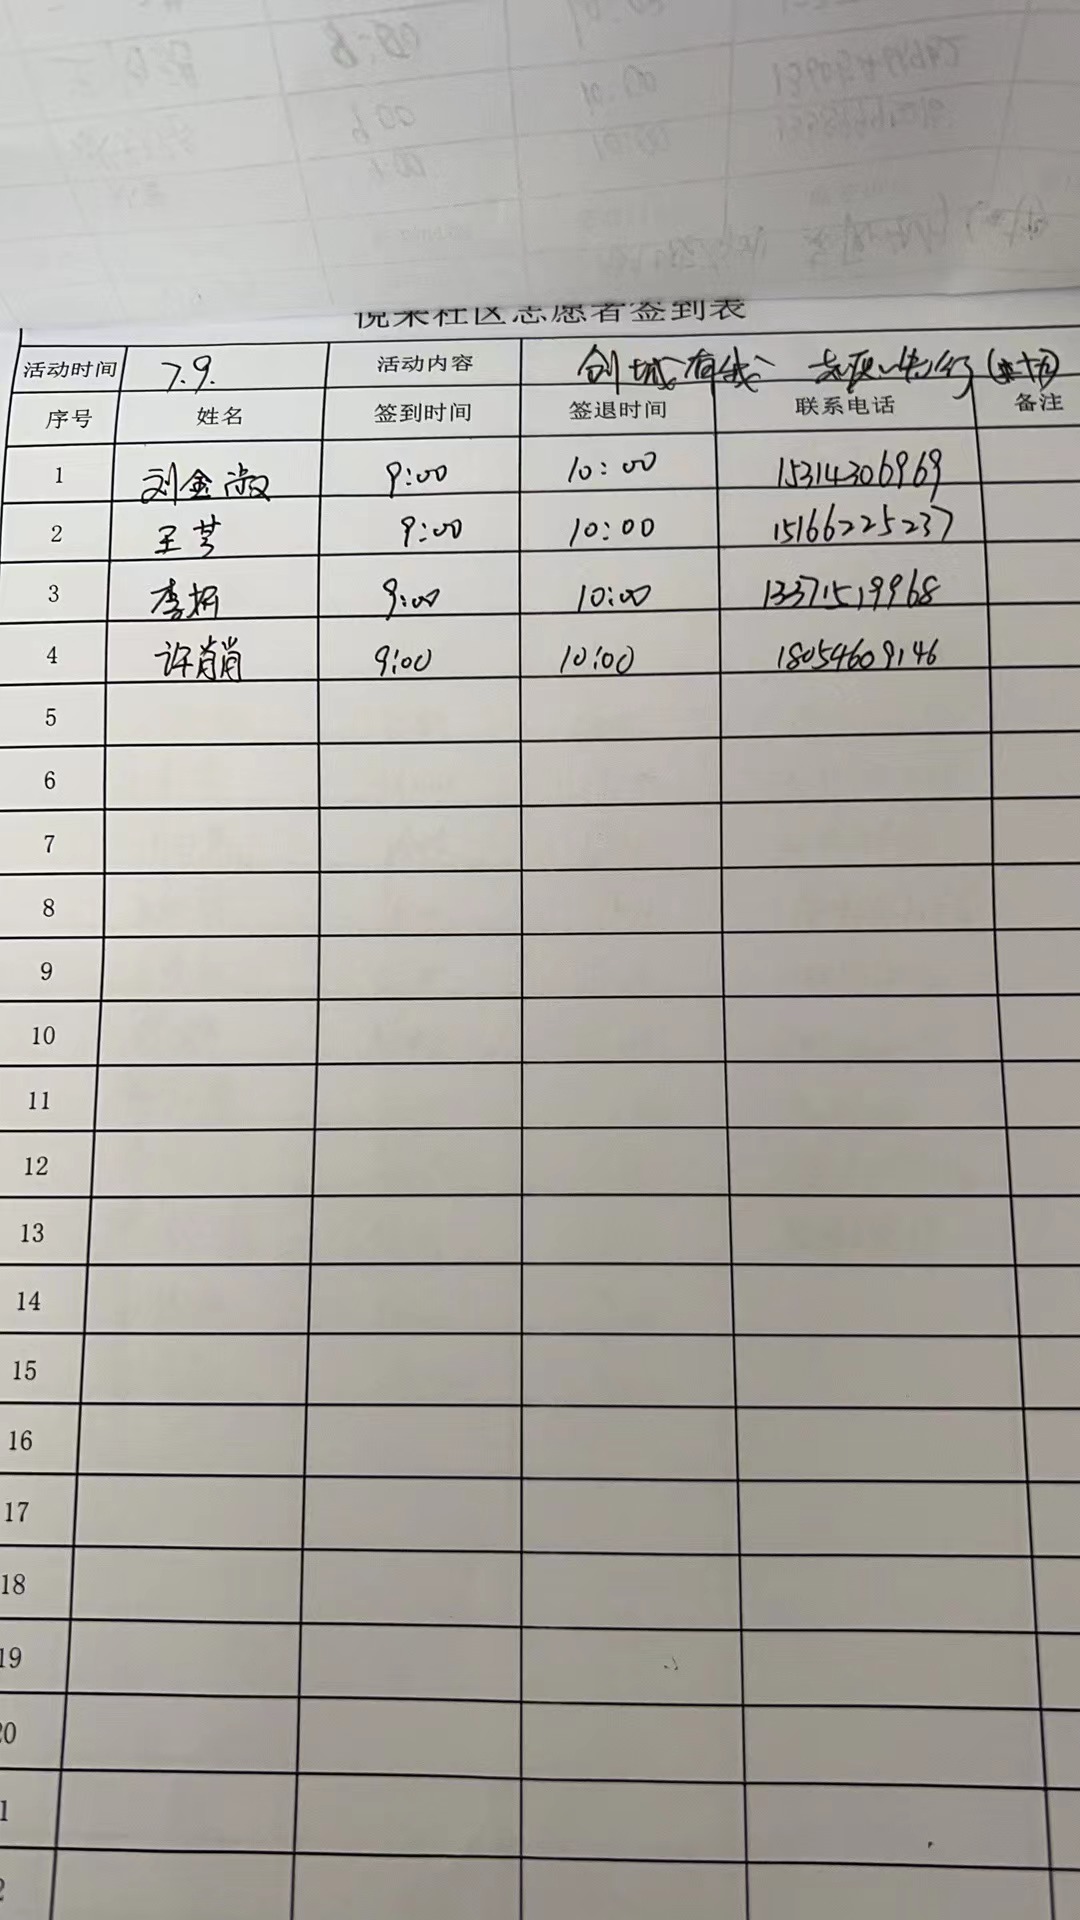 悦来社区志愿者签到表
活动时间 7.9. 活动内容 创城有我 志愿先行
序号 姓名 签到时间 签退时间 联系电话 备注
1 刘金淑 9:00 10:00 15314306969
2 王芳 9:00 10:00 15166225237
3 李娇 9:00 10:00 13371519968
4 许肖肖 9:00 10:00 18054609146
5
6
7
8
9
10
11
12
13
14
15
16
17
18
19
20
1
2